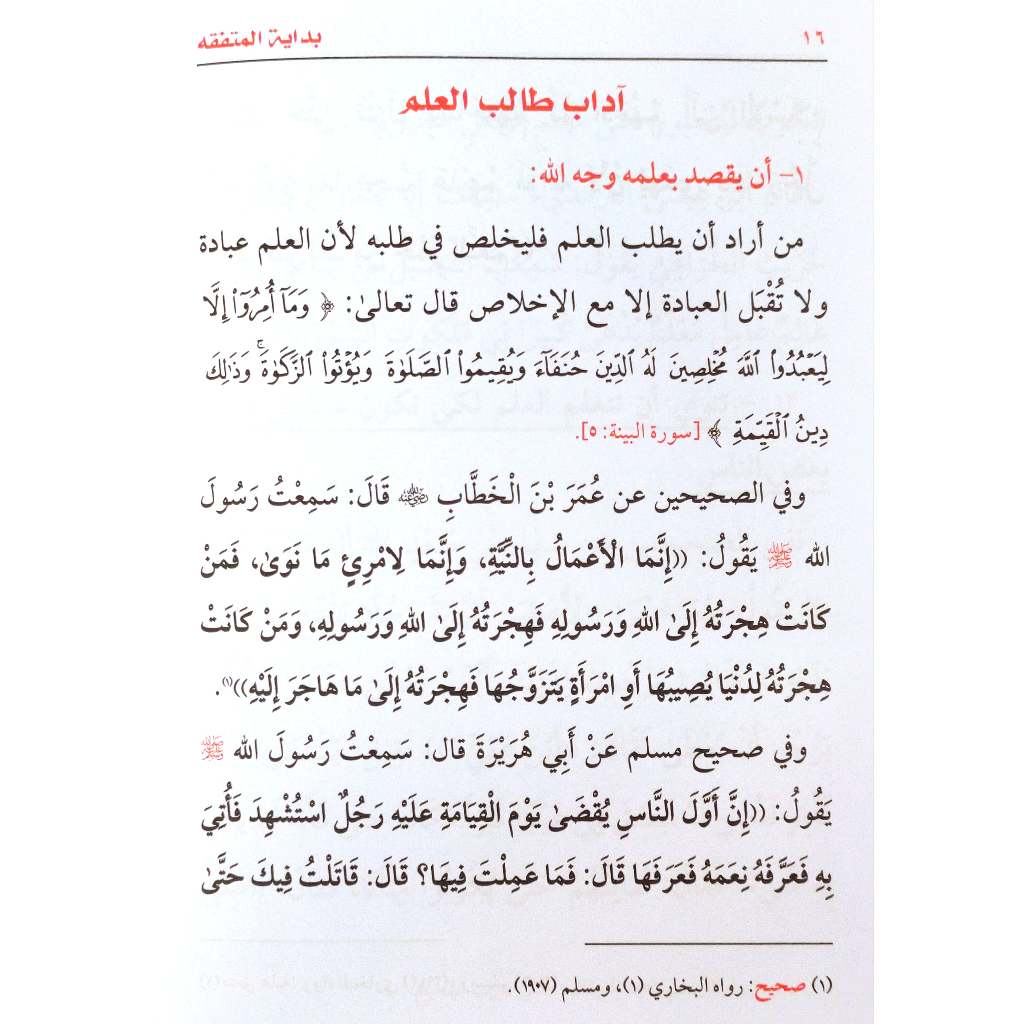 ١٦ بداية المتفقه
آداب طالب العلم
١- أن يقصد بعلمه وجه الله:
من أراد أن يطلب العلم فليخلص في طلبه لأن العلم عبادة
ولا تُقْبَل العبادة إلا مع الإخلاص قال تعالىٰ: ﴿ وَمَآ أُمِرُوٓا۟ إِلَّا
لِيَعْبُدُوا۟ ٱللَّهَ مُخْلِصِينَ لَهُ ٱلدِّينَ حُنَفَآءَ وَيُقِيمُوا۟ ٱلصَّلَوٰةَ وَيُؤْتُوا۟ ٱلزَّكَوٰةَ ۚ وَذَٰلِكَ
دِينُ ٱلْقَيِّمَةِ ﴾ [سورة البينة: ٥].
وفي الصحيحين عن عُمَرَ بْنَ الْخَطَّابِ رضي الله عنه قَالَ: سَمِعْتُ رَسُولَ
الله ﷺ يَقُولُ: ((إِنَّمَا الْأَعْمَالُ بِالنِّيَّةِ، وَإِنَّمَا لِامْرِئٍ مَا نَوَىٰ، فَمَنْ
كَانَتْ هِجْرَتُهُ إِلَىٰ اللهِ وَرَسُولِهِ فَهِجْرَتُهُ إِلَىٰ اللهِ وَرَسُولِهِ، وَمَنْ كَانَتْ
هِجْرَتُهُ لِدُنْيَا يُصِيبُهَا أَوِ امْرَأَةٍ يَتَزَوَّجُهَا فَهِجْرَتُهُ إِلَىٰ مَا هَاجَرَ إِلَيْهِ))(١).
وفي صحيح مسلم عَنْ أَبِي هُرَيْرَةَ قال: سَمِعْتُ رَسُولَ الله ﷺ
يَقُولُ: ((إِنَّ أَوَّلَ النَّاسِ يُقْضَىٰ يَوْمَ الْقِيَامَةِ عَلَيْهِ رَجُلٌ اسْتُشْهِدَ فَأُتِيَ
بِهِ فَعَرَّفَهُ نِعَمَهُ فَعَرَفَهَا قَالَ: فَمَا عَمِلْتَ فِيهَا؟ قَالَ: قَاتَلْتُ فِيكَ حَتَّىٰ
(١) صحيح: رواه البخاري (١)، ومسلم (١٩٠٧).